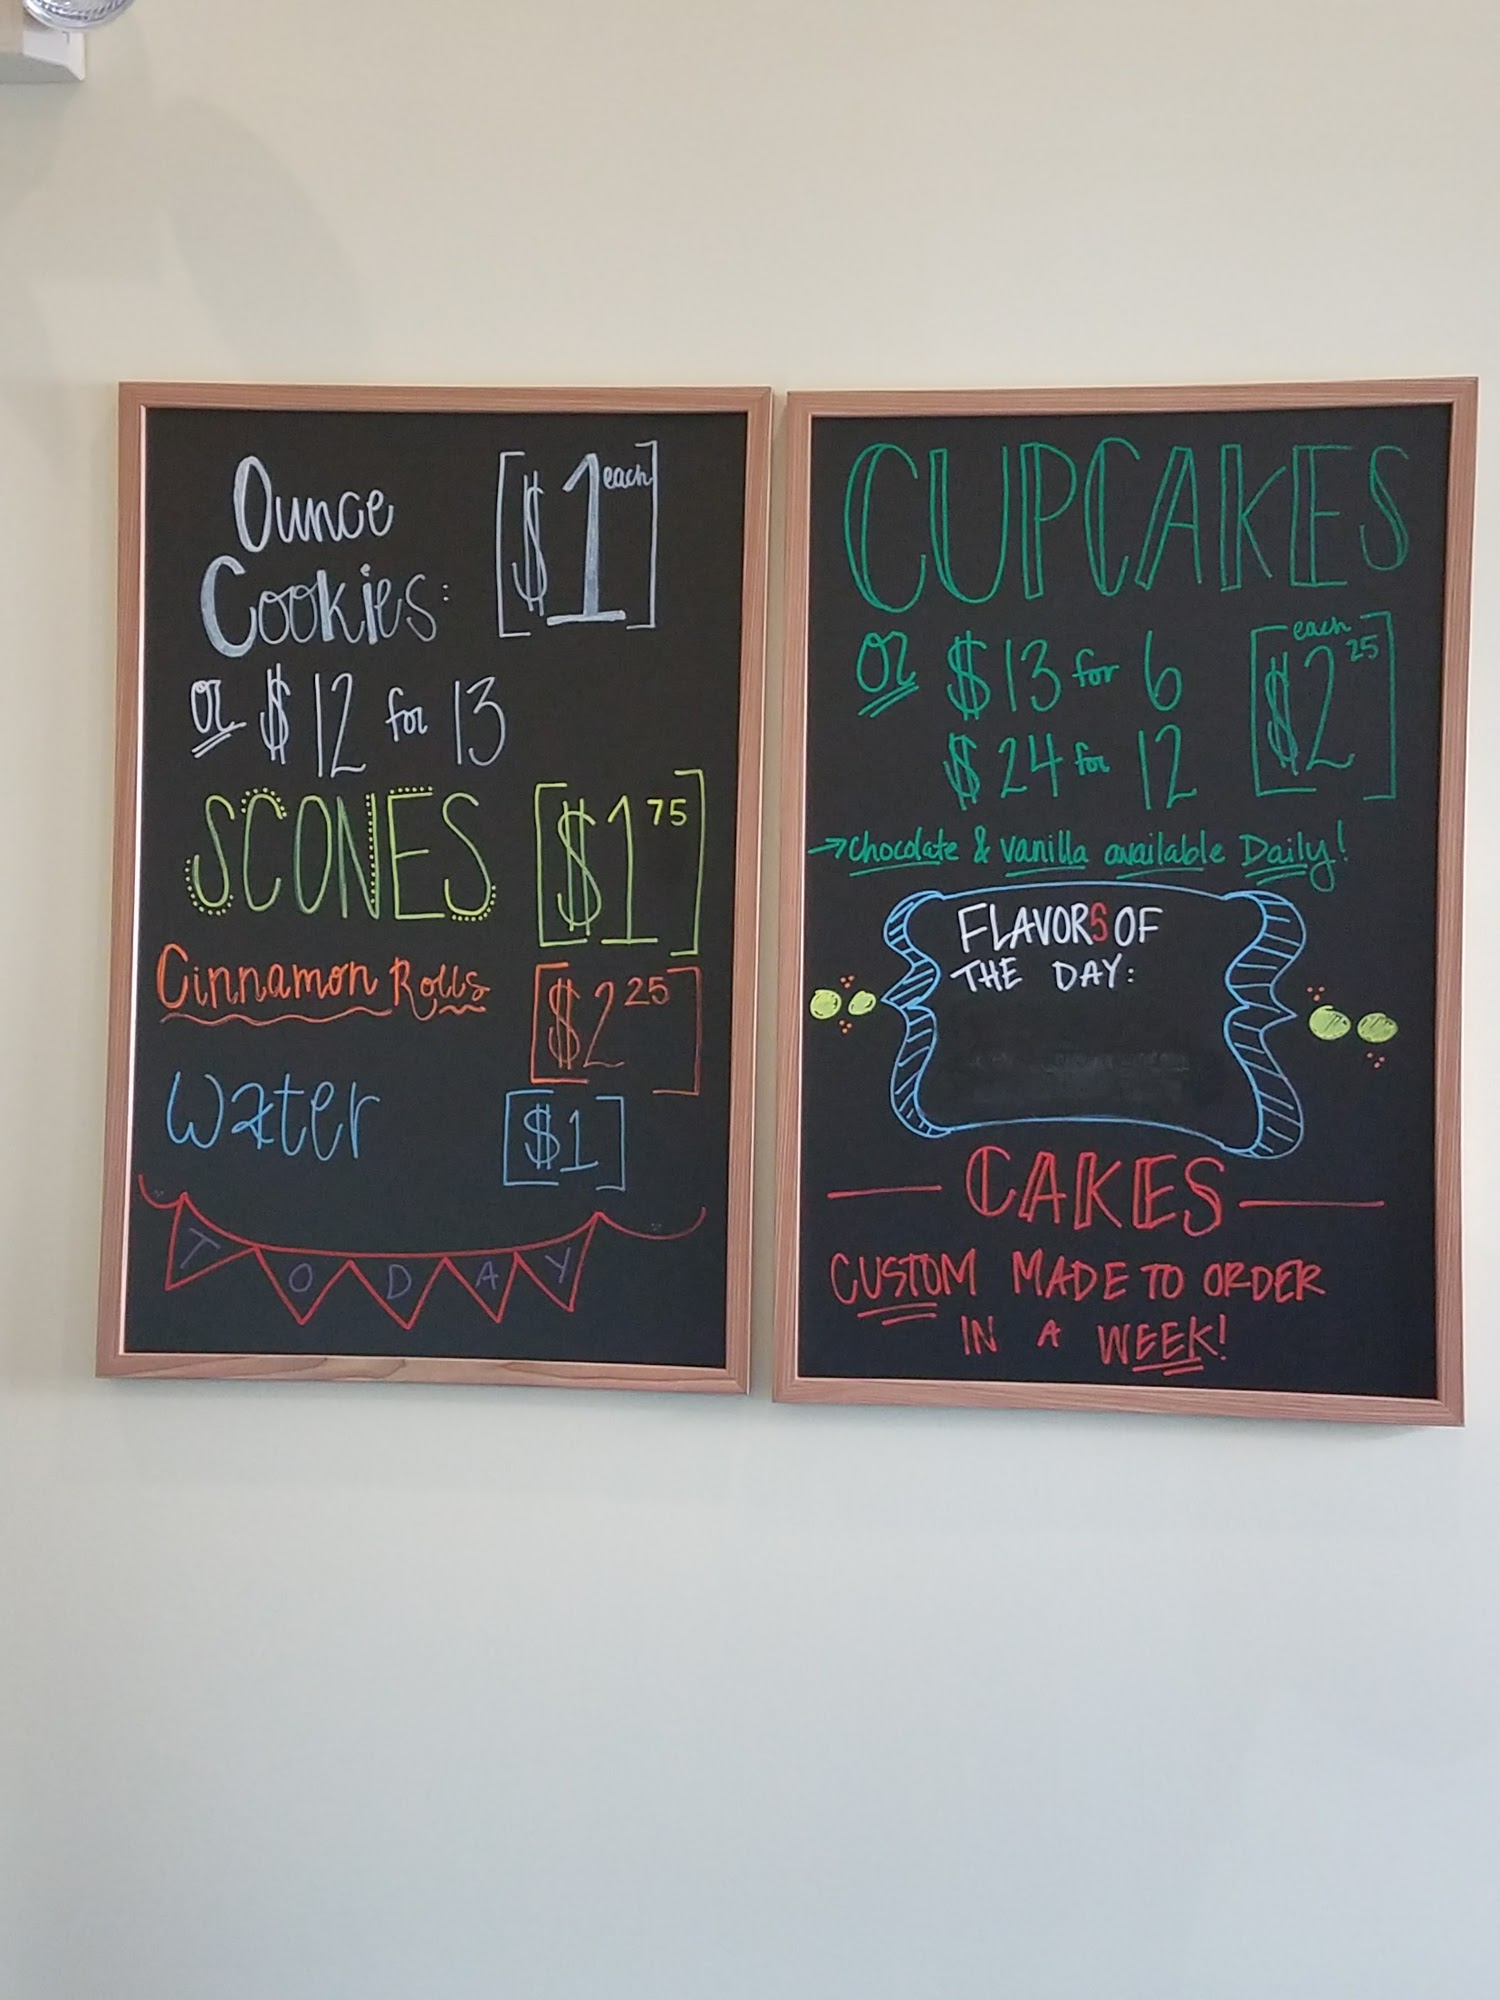 Ounce
Cookies:
$1 each
or $12 for 13
SCONES $1 75
Cinnamon Rolls $2 25
Water $1
TODAY
CUPCAKES
or $13 for 6
$24 for 12
each
$2 25
→ Chocolate & vanilla available Daily!
FLAVORS OF
THE DAY:
CAKES
CUSTOM MADE TO ORDER
IN A WEEK!